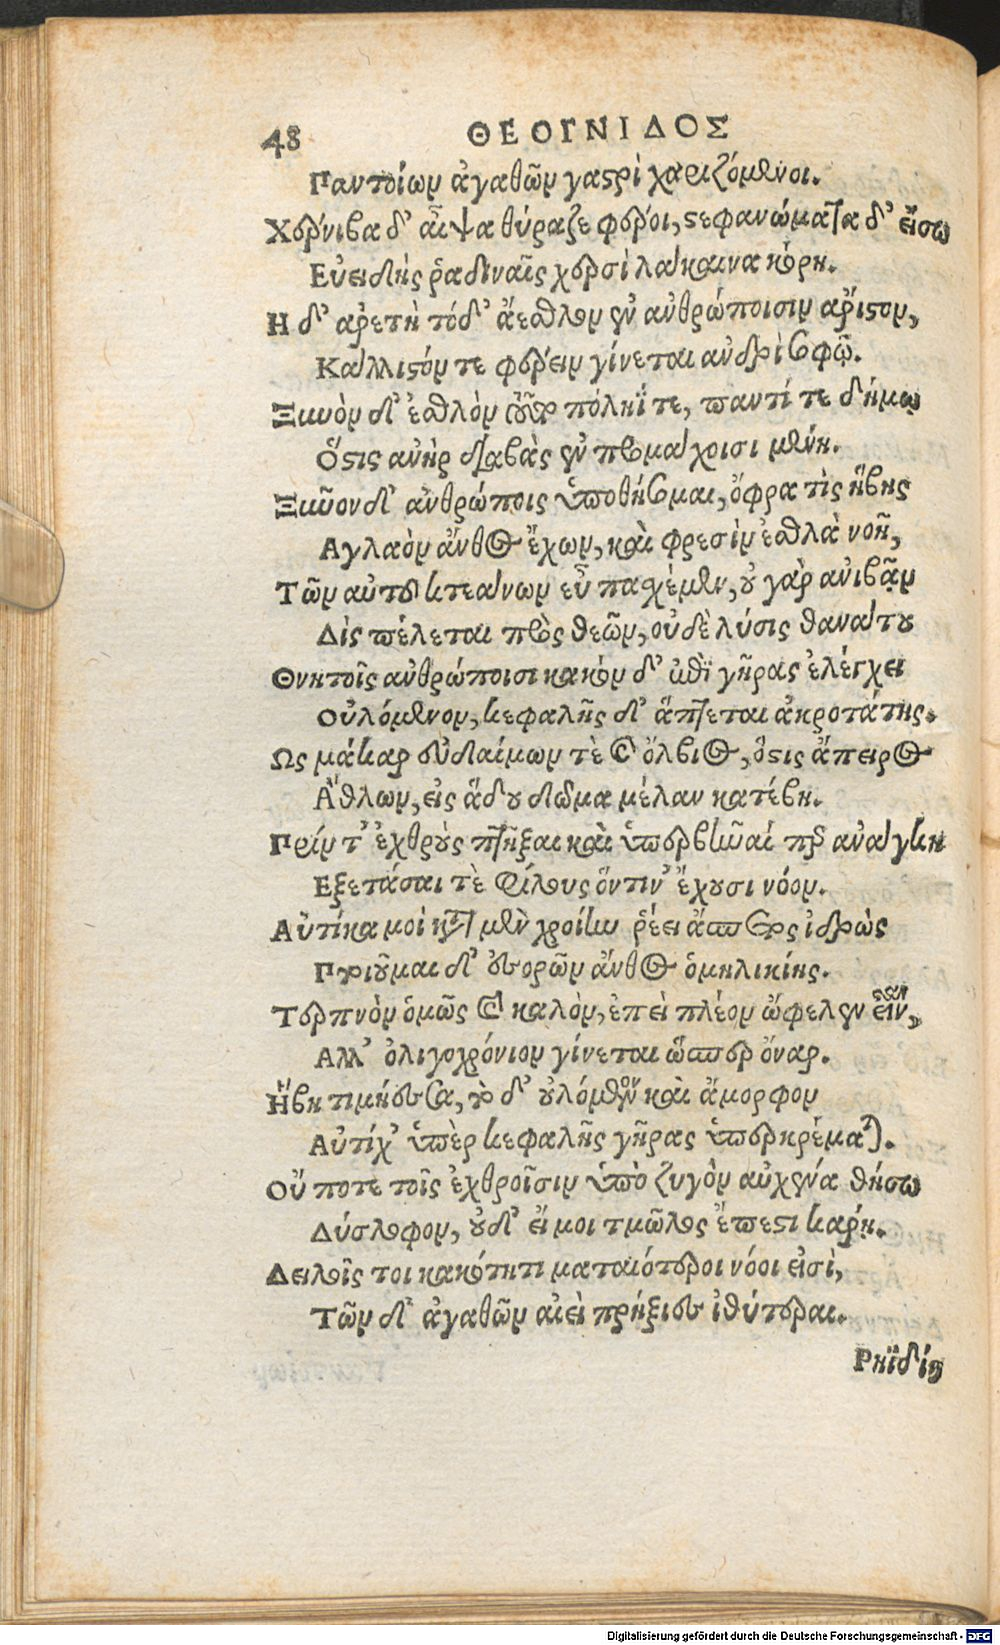 48 ΘΕΟΓΝΙΔΟΣ
Παντοίων ἀγαθῶν γαστρὶ χαριζόμενοι.
Χέρνιβα δ' αἶψα θύραζε φέροι, στεφανώματα δ' εἴσω
Εὐειδὴς ῥαδιναῖς χερσὶ λάκαινα κόρη.
Η δ' ἀρετὴ τόδ' ἄεθλον ἐν ἀνθρώποισιν ἄριστον,
Κάλλιστόν τε φέρειν γίνεται ἀνδρὶ σοφῷ.
Ξυνὸν δ' ἐσθλὸν τοῦτο πόληΐ τε, παντί τε δήμῳ
Ὅστις ἀνὴρ διαβὰς ἐν προμάχοισι μένῃ.
Ξυνὸν δ' ἀνθρώποις ὑποθήσομαι, ὄφρα τὶς ἥβης
Αγλαὸν ἄνθος ἔχων, καὶ φρεσὶν ἐσθλὰ νοῇ,
Τῶν αὐτοῦ κτεάνων εὖ πασχέμεν, οὐ γὰρ ἀνιβᾷν
Δὶς πέλεται πρὸς θεῶν, οὐδὲ λύσις θανάτου
Θνητοῖς ἀνθρώποισι κακὸν δ' ἐπὶ γῆρας ἐλέγχει
Οὐλόμενον, κεφαλῆς δ' ἅπτεται ἀκροτάτης.
Ως μάκαρ εὐδαίμων τὲ καὶ ὄλβιος, ὅστις ἄπειρος
Ἄθλων, εἰς ἅδου δῶμα μέλαν κατέβη.
Πρίν τ' ἐχθροὺς πτῆξαι καὶ ὑπερβῆναί περ ἀνάγκη
Εξετάσαι τὲ φίλους ὅντιν' ἔχουσι νόον.
Αὐτίκα μοὶ κατὰ μὲν χροίην ῥέει ἄσπετος ἱδρὼς
Πτοιοῦμαι δ' ἐσορῶν ἄνθος ὁμηλικίης.
Τερπνὸν ὁμῶς καὶ καλὸν, ἐπεὶ πλέον ὤφελεν εἶναι,
Αλλ' ὀλιγοχρόνιον γίνεται ὥσπερ ὄναρ.
Ἥβη τιμήεσσα, τὸ δ' οὐλόμενον καὶ ἄμορφον
Αὐτίχ' ὑπὲρ κεφαλῆς γῆρας ὑπερκρέμαται.
Οὔ ποτε τοῖς ἐχθροῖσιν ὑπὸ ζυγὸν αὐχένα θήσω
Δύσλοφον, οὐδ' εἴ μοι τμῶλος ἔπεστι κάρῃ.
Δειλοῖς τοι κακότητι ματαιότεροι νόοι εἰσὶ,
Τῶν δ' ἀγαθῶν αἰεὶ πρήξιες ἰθύτεραι.
Ρηϊδίη
Digitalisierung gefördert durch die Deutsche Forschungsgemeinschaft - DFG